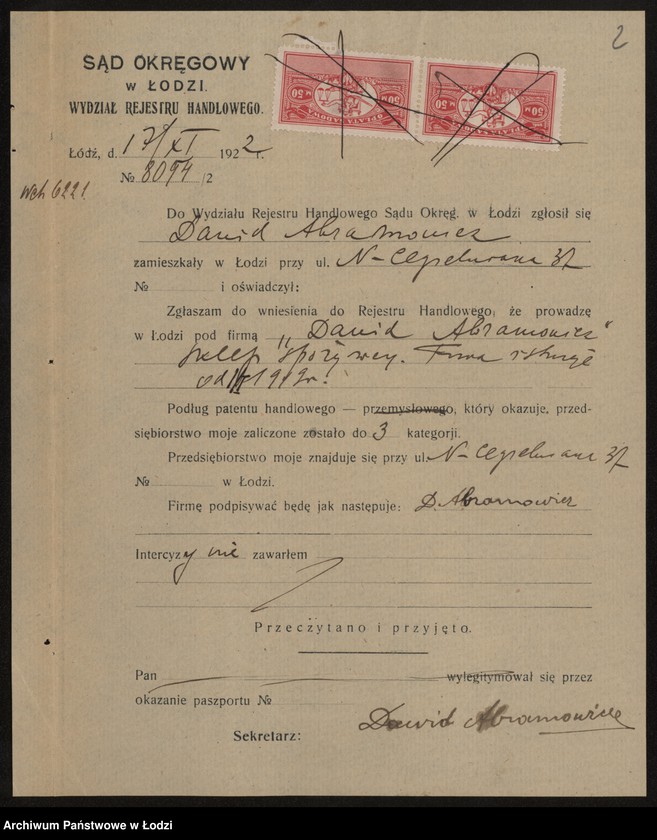 2
SĄD OKRĘGOWY
w ŁODZI.
WYDZIAŁ REJESTRU HANDLOWEGO.
Łódź, d. 17/XI 1922 r.
№ 8094/2
Do Wydziału Rejestru Handlowego Sądu Okręg. w Łodzi zgłosił się
Dawid Abramowicz
zamieszkały w Łodzi przy ul. N-Cegielniana 37
№ i oświadczył:
Zgłaszam do wniesienia do Rejestru Handlowego, że prowadzę
w Łodzi pod firmą „Dawid Abramowicz"
sklep spożywczy. Firma istnieje
od 1919 r.
Podług patentu handlowego — przemysłowego, który okazuje, przed-
siębiorstwo moje zaliczone zostało do 3 kategorji.
Przedsiębiorstwo moje znajduje się przy ul. N-Cegielniana 37
№ w Łodzi.
Firmę podpisywać będę jak następuje: D. Abramowicz
Intercyzy nie zawarłem
Przeczytano i przyjęto.
Pan wylegitymował się przez
okazanie paszportu №
Dawid Abramowicz
Sekretarz:
Archiwum Państwowe w Łodzi